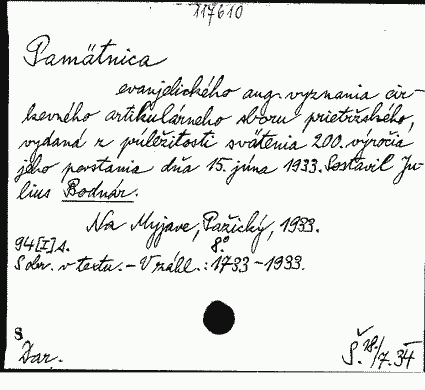 117610
Pamätnica
evanjelického aug. vyznania cir-
kevného artikulárneho sboru prietržského,
vydaná z príležitosti svätenia 200. výročia
jeho povstania dňa 15. júna 1933. Sostavil Ju-
lius Bodnár.
Na Myjave, Pažický, 1933.
8°
94 [I] s.
S obr. v textu. - V záhl.: 1733-1933.
S
Dar.
Š. 18./7. 34